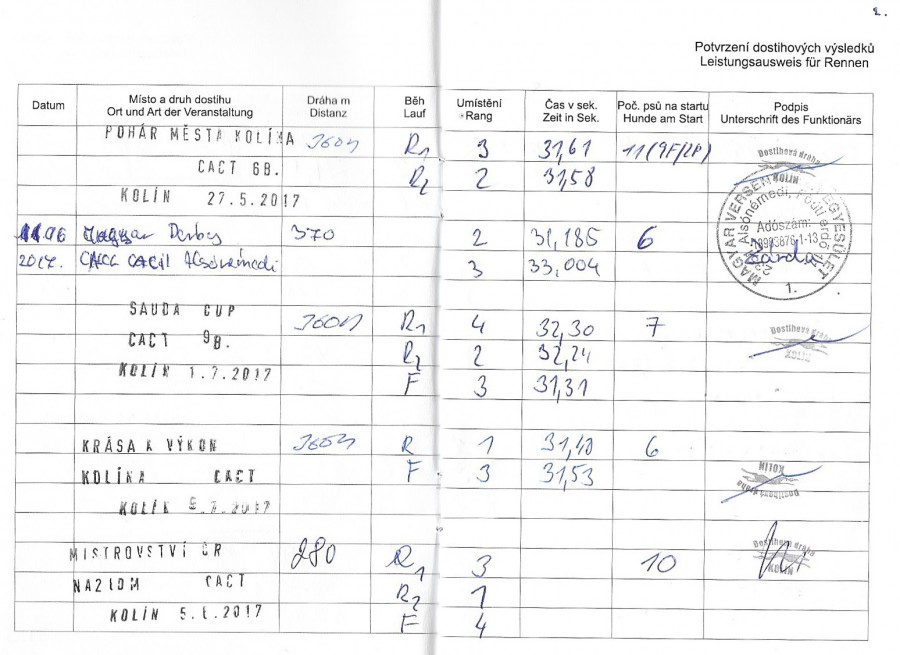 2.
Potvrzení dostihových výsledků
Leistungsausweis für Rennen
Datum Místo a druh dostihu Dráha m Běh Umístění Čas v sek. Poč. psů na startu Podpis
Ort und Art der Veranstaltung Distanz Lauf Rang Zeit in Sek. Hunde am Start Unterschrift des Funktionärs
POHÁR MĚSTA KOLÍNA 360m R1 3 31,61 11 (9F/2P) Dostihová dráha
CACT 6B. R2 2 31,58 KOLÍN
KOLÍN 27.5.2017
11.06 Magyar Derby 370 2 31,185 6
2017. CACIL Alsónémedi 3 33,004
MAGYAR VERSENY EGYESÜLET
Alsónémedi, Fődti erdő
Adószám:
1-13
1.
SAUDA CUP 360m R1 4 32,30 7 Dostihová dráha
CACT 9B. R2 2 32,24 KOLÍN
KOLÍN 1.7.2017 F 3 31,31
KRÁSA A VÝKON 360m R 1 31,48 6
KOLÍNA CACT F 3 31,53 KOLÍN
KOLÍN 9.7.2017 Dostihová dráha
MISTROVSTVÍ ČR 280 R1 3 10 Dostihová dráha
NAZLOM CACT R2 1 KOLÍN
KOLÍN 5.L.2017 F 4